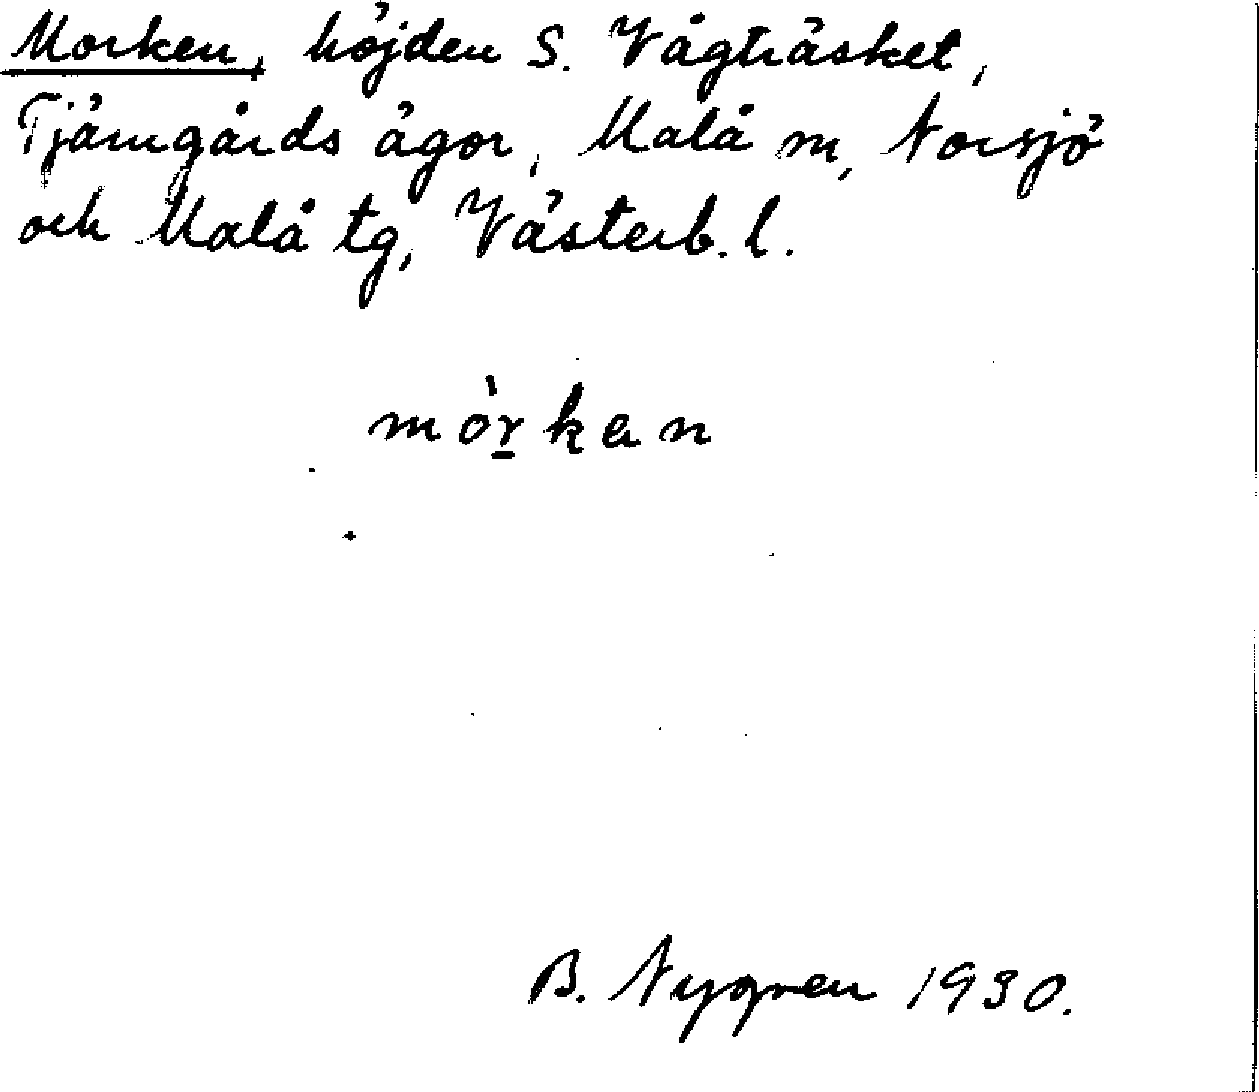 Morken, höjden S. Vågträsket,
Tjärngårds ägor, Malå m, Norsjö
och Malå tg, Västerb. l.
mòr̲kan
B. Nygren 1930.